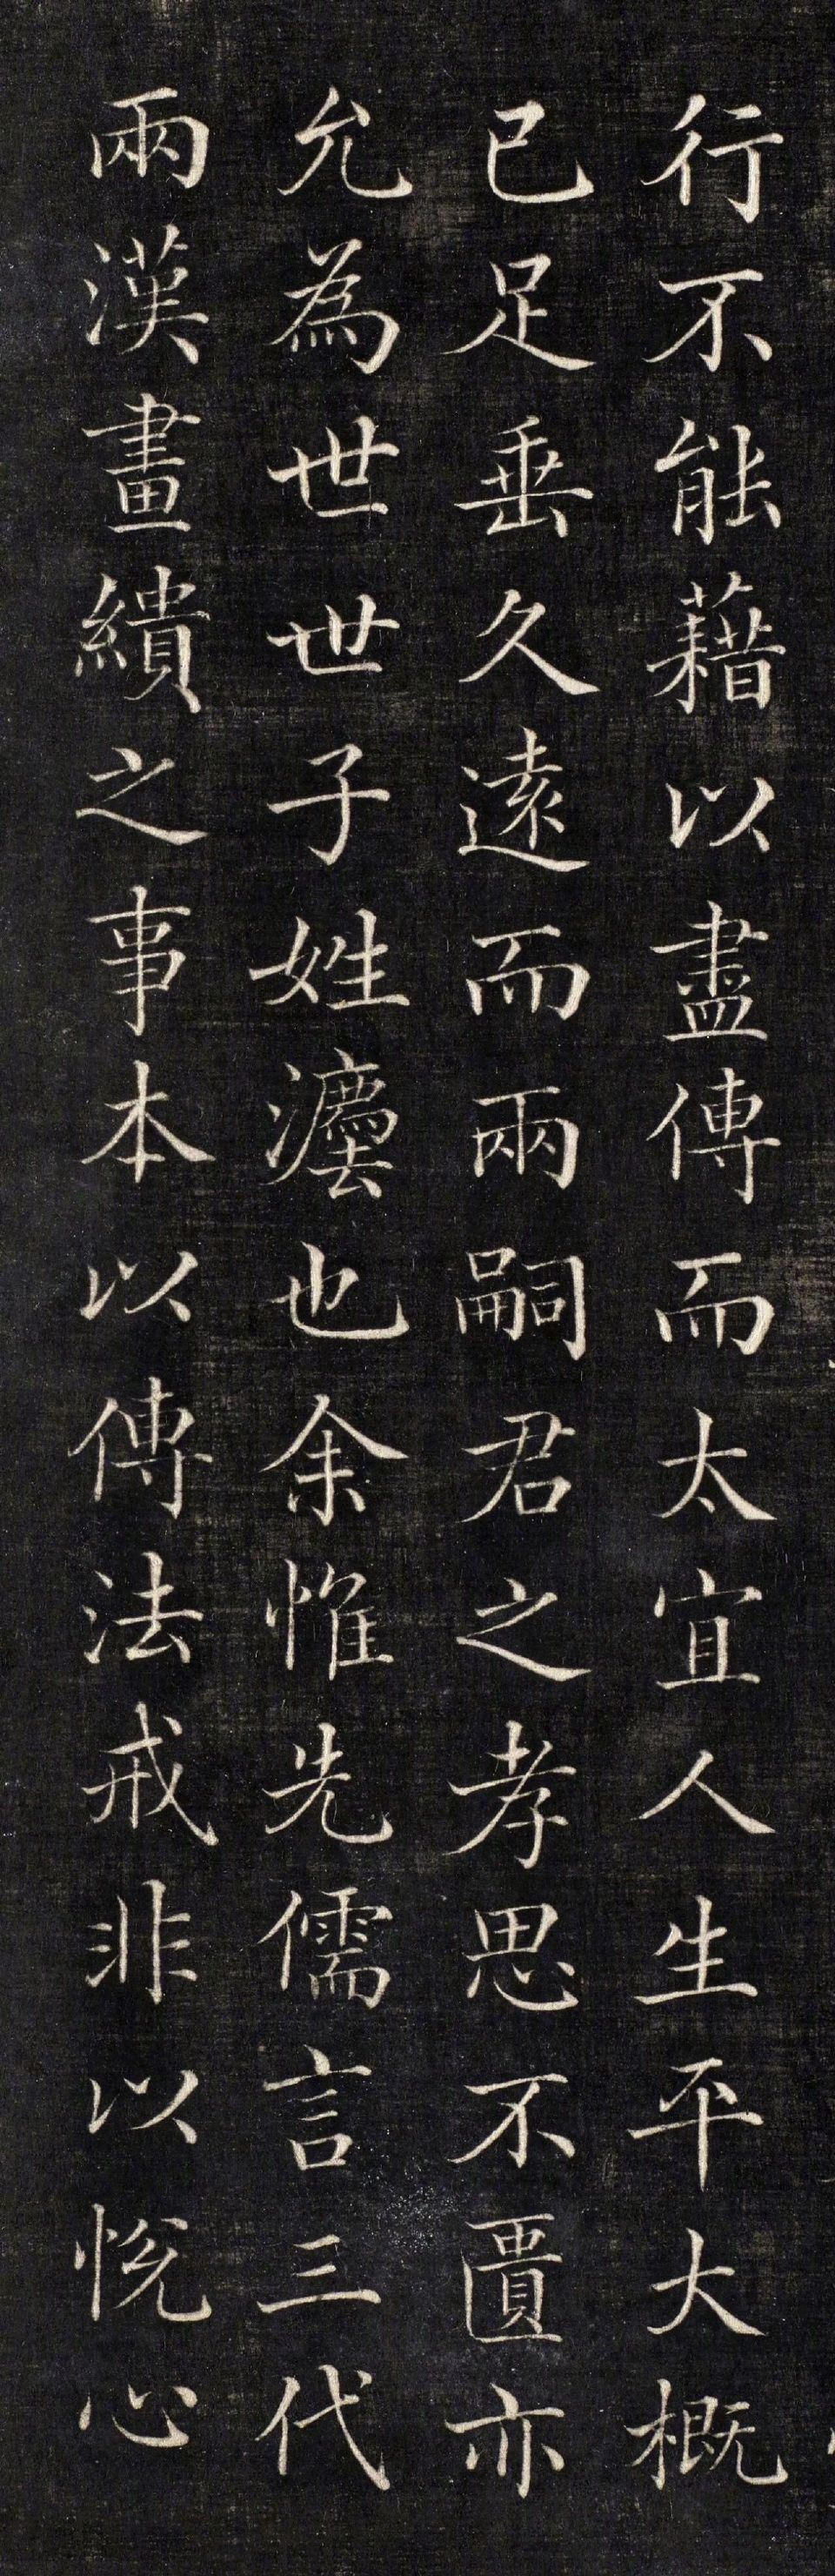 行不能藉以盡傳而太宜人生平大概
已足垂久遠而兩嗣君之孝思不匱亦
允為世世子姓灋也余惟先儒言三代
兩漢畫繢之事本以傳法戒非以悅心